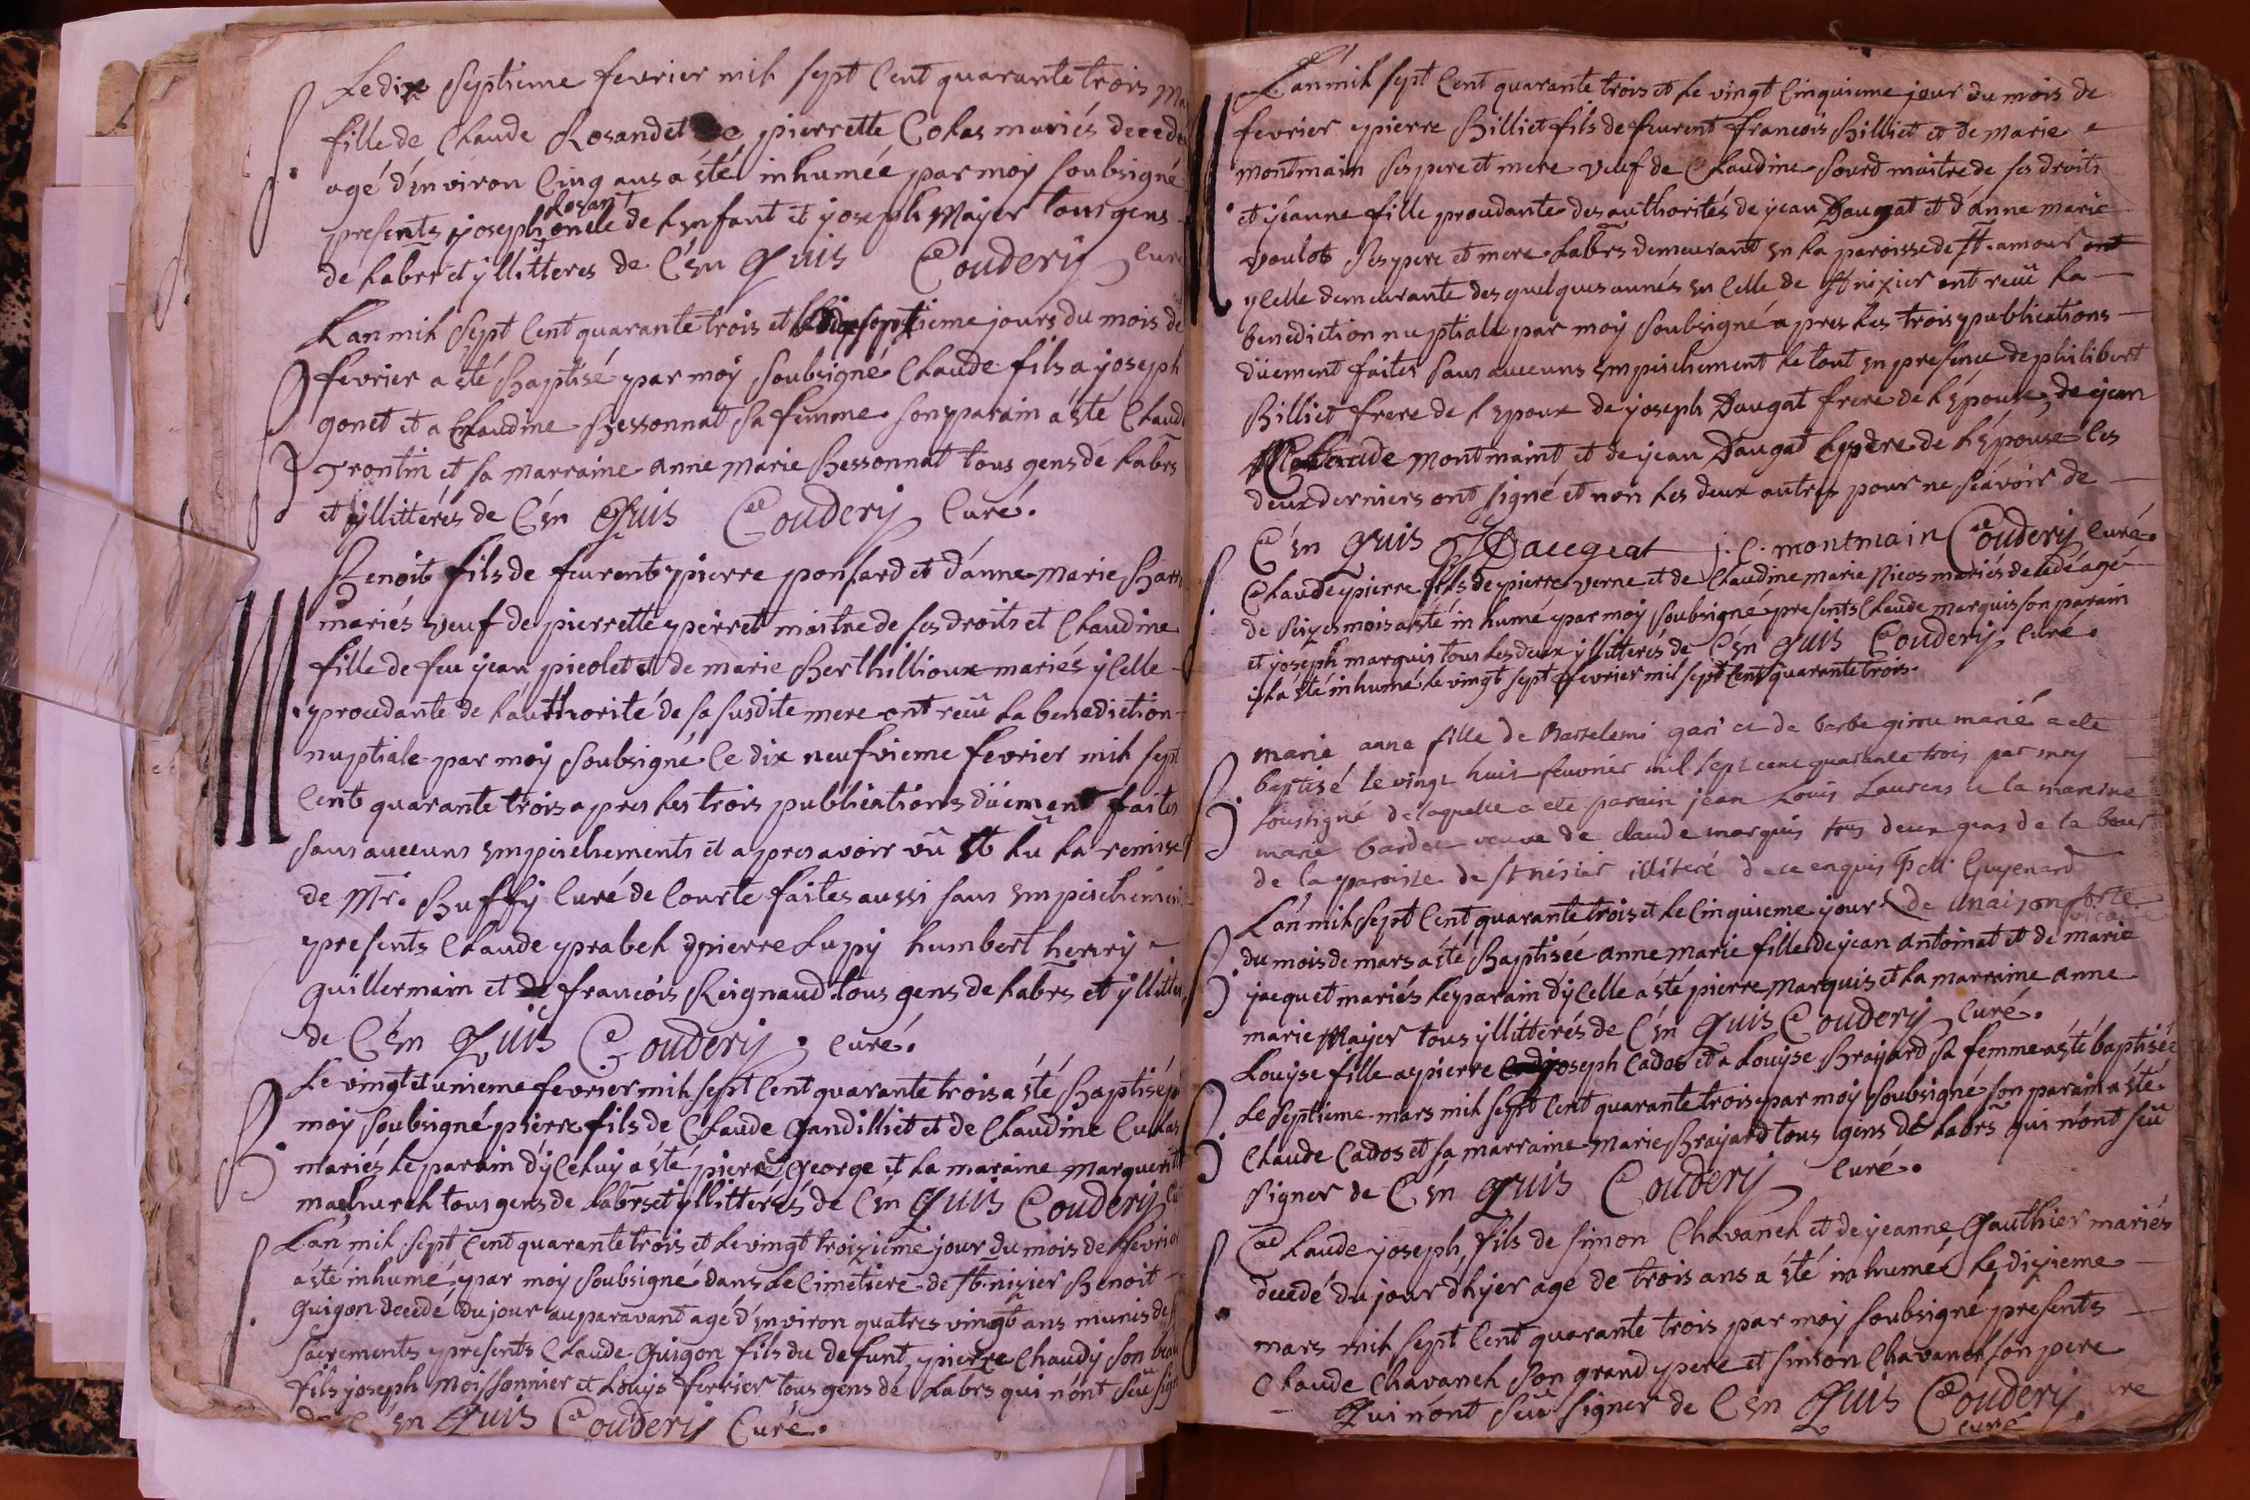 Le dix septieme fevrier mil sept Cent quarante trois
fille de Claude Rosandet pierrette Colas mariés decedée
agé d'environ Cinq ans a été inhumée par moy soubsigné
presents joseph Rosant oncle de L'enfant et joseph Mayer tous gens
de Labrs et yllitteres de C'en Quis Couderij Curé
L'an mil sept Cent quarante trois et le dix septieme jours du mois de
fevrier a été Baptisé par moy soubsigné Claude fils a joseph
gonet et a Claudine Bessonnat sa femme son parain a été Claude
Trontin et sa marraine anne marie Bessonnat tous gens de Labrs
et yllitterés de C'en Quis Couderij Curé.
Benoit fils de feu pierre ponsard et d'anne Marie
mariés veuf de pierrette perret maitre de ses droits et Claudine
fille de feu jean picolet et de marie Berthillioux mariés ycelle
procedante de L'authorité de sa susdite mere ont reçû La benediction
nuptiale par moy soubsigné Le dix neufvieme fevrier mil sept
Cent quarante trois apres Les trois publications düement faites
sans aucuns empeschements et apres avoir vû et Lû La remise
de Mr. Buffy Curé de Courte faites aussi sans empeschement
presents Claude prabel pierre Lupy humbert henry
guillermain et de françois Reignaud tous gens de Labrs et yllitterés
de C'en Quis Couderij. Curé.
Le vingt et unieme fevrier mil sept Cent quarante trois a été Baptisé par
moy soubsigné pierre fils de Claude Gandilliet et de Claudine Cukas
mariés Le parain d'yceluy a été pierre George et La maraine Marguerite
tous gens de Labrs et yllitterés de C'en Quis Couderij Cu
L'an mil sept Cent quarante trois et Le vingt troisieme jour du mois de fevrier
a été inhumé par moy soubsigné dans Le Cimetiere de St. nizier Benoit
Guigon decedé du jour auparavant agé d'environ quatres vingt ans munis de
sacrements presents Claude Guigon fils du defunt pierre Chaudy son beau
fils joseph Moissonnier et Louys ferrier tous gens de Labrs qui n'ont sceu sign
de C'en Quis Couderij Curé.
L'an mil sept Cent quarante trois et Le vingt Cinquieme jour du mois de
fevrier pierre Billiet fils de feu francois Billiet et de Marie
montmain ses pere et mere veuf de Claudine sourd maitre de ses droits
et jeanne fille procedante des authorités de jean Daugat et d'anne marie
voulot ses pere et mere Labrs demeurant en La paroisse de St. amour ont
ycelle demeurante des quelques années en Celle de St nizier ont reçû La
benediction nuptiale par moy soubsigné apres Les trois publications
düement faites sans aucuns empeschement Le tout en presence de philibert
Billiet frere de L'epoux de joseph Daugat frere de L'épouse, de jean
Claude montmaint et de jean Daugat Le pere de L'épouse Les
deux derniers ont signé et non Les deux autres pour ne sçavoir de
C'en Quis J Daugat j. C. montmain Couderij Curé.
Claude pierre fils de pierre verne et de Claudine marie Nicos mariés decedé agé
de seizes mois a été inhumé par moy soubsigné presents Claude marquis son parain
et joseph marquis tous Les deux yllitterés de C'en Quis Couderij. Curé.
il a été inhumé Le vingt sept fevrier mil sept Cent quarante trois.
marie anne fille de Bartelemi gari et de barbe mariè a ete
baptisé le vingt huit feuvrier mil sept cent quarante trois par moy
soussigné de laquelle a ete parain jean Louis Laurens et la mareine
marie bardet veuve de claude marquis tous deux gens de la bour
de la paroisse de st nisier illiteré de ce enquis petit Guyenard
L'an mil sept Cent quarante trois et Le Cinquieme jour de
du mois de mars a été Baptisée anne marie fille de jean antoinat et de marie
jacquet mariés Le parain d'ycelle a été pierre Marquis et La marraine anne
marie Mayer tous yllitterés de C'en Quis Couderij Curé.
Louyse fille a pierre joseph Cados et a Louyse Brayard sa femme a été baptisée
Le septieme mars mil sept Cent quarante trois par moy soubsigné son parain a été
Claude Cados et sa marraine marie Brayard tous gens de Labrs qui n'ont sceü
signer de C'en Quis Couderij Curé.
Claude joseph fils de simon Chavanel et de jeanne Gauthier mariés
decedé du jour d'hyer agé de trois ans a été inhumé Le dizieme
mars mil sept Cent quarante trois par moy soubsigné presents
Claude Chavanel son grand pere et simon Chavanel son pere
Qui n'ont sceü signer de C'en Quis Couderij
Curé